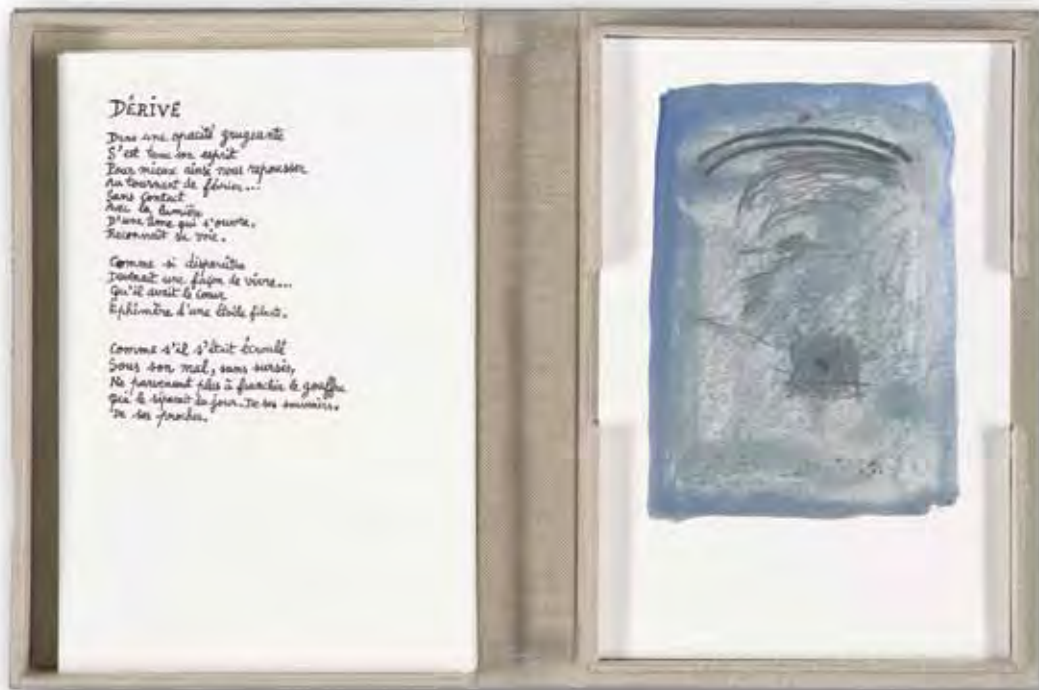 DÉRIVE
Dans une opacité grugeante
S'est tenu son esprit
Pour mieux ainsi nous repousser
Au tournant de février...
Sans contact
Avec la lumière
D'une âme qui s'ouvre.
Reconnaît sa voie.
Comme si disparaître
Devenait une façon de vivre...
Qu'il avait le cœur
Éphémère d'une étoile filante.
Comme s'il s'était écroulé
Sous son mal, sans sursis,
Ne parvenant plus à franchir le gouffre
Qui le séparait du jour. De ses souvenirs.
De ses proches.